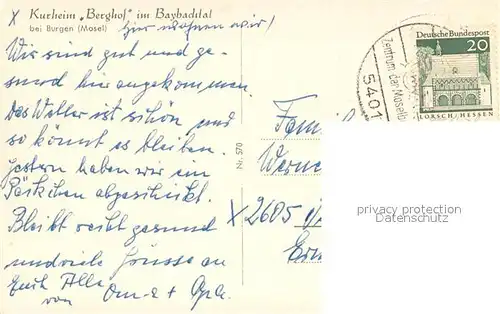 x Kurheim „Berghof" im Baybachtal
bei Burgen (Mosel) hier wohnen wir!
Wir sind gut und ge-
sund hier angekommen.
Das Wetter ist schön und
so könnt es bleiben.
Gestern haben wir ein
Päckchen abgeschickt.
Bleibt recht gesund
und viele Grüsse an
Euch Alle
von Oma + Opa.
Nr. 570
Zentrum der
5401
Deutsche Bundespost
20
LORSCH/HESSEN
Fam
Werne
x 2605
privacy protection
Datenschutz